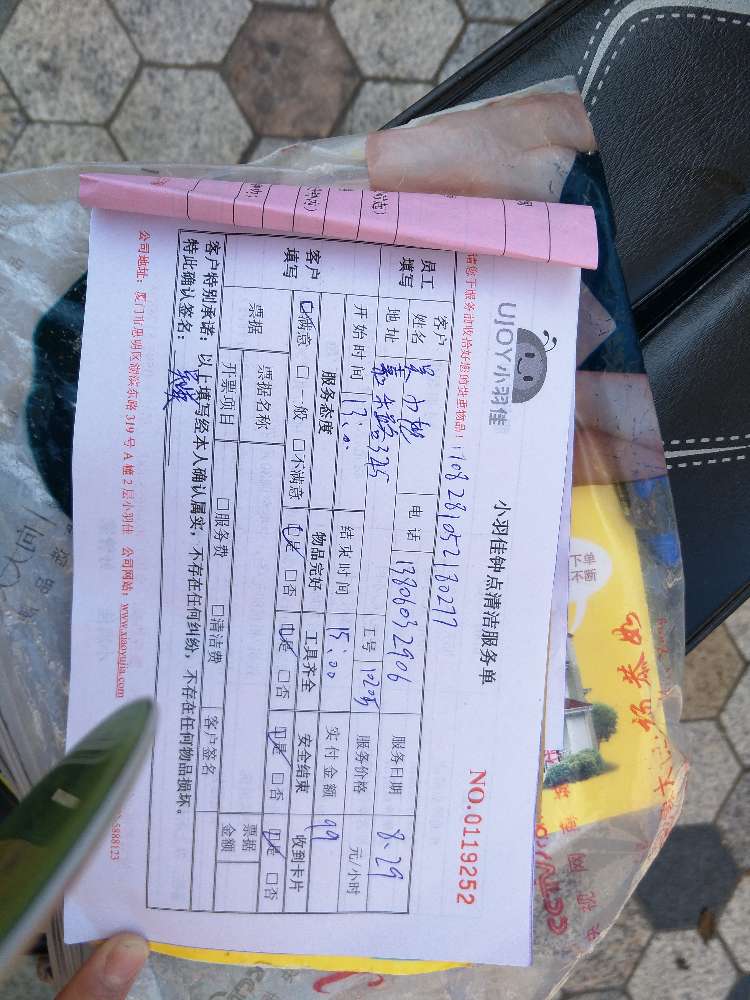 UJOY小羽佳
小羽佳钟点清洁服务单
NO.0119252
请您于服务前收拾好您的贵重物品!
108281052180277
员工填写
客户姓名
电话
13806032906
服务日期
8.29
地址
嘉禾路325
工号
服务价格
元/小时
开始时间
13:00
结束时间
15:00
实付金额
99
客户填写
服务态度
物品完好
工具齐全
安全结束
收到卡片
☑满意 □一般 □不满意
☑是 □否
☑是 □否
☑是 □否
☑是 □否
票据
票据名称
票据金额
开票项目
□服务费 □清洁费
客户签名
客户特别承诺:以上填写经本人确认属实,不存在任何纠纷,不存在任何物品损坏。
特此确认签名:
公司地址:厦门市思明区湖滨东路319号A幢2层小羽佳 公司网站:www.xiaoyujia.com
5888123